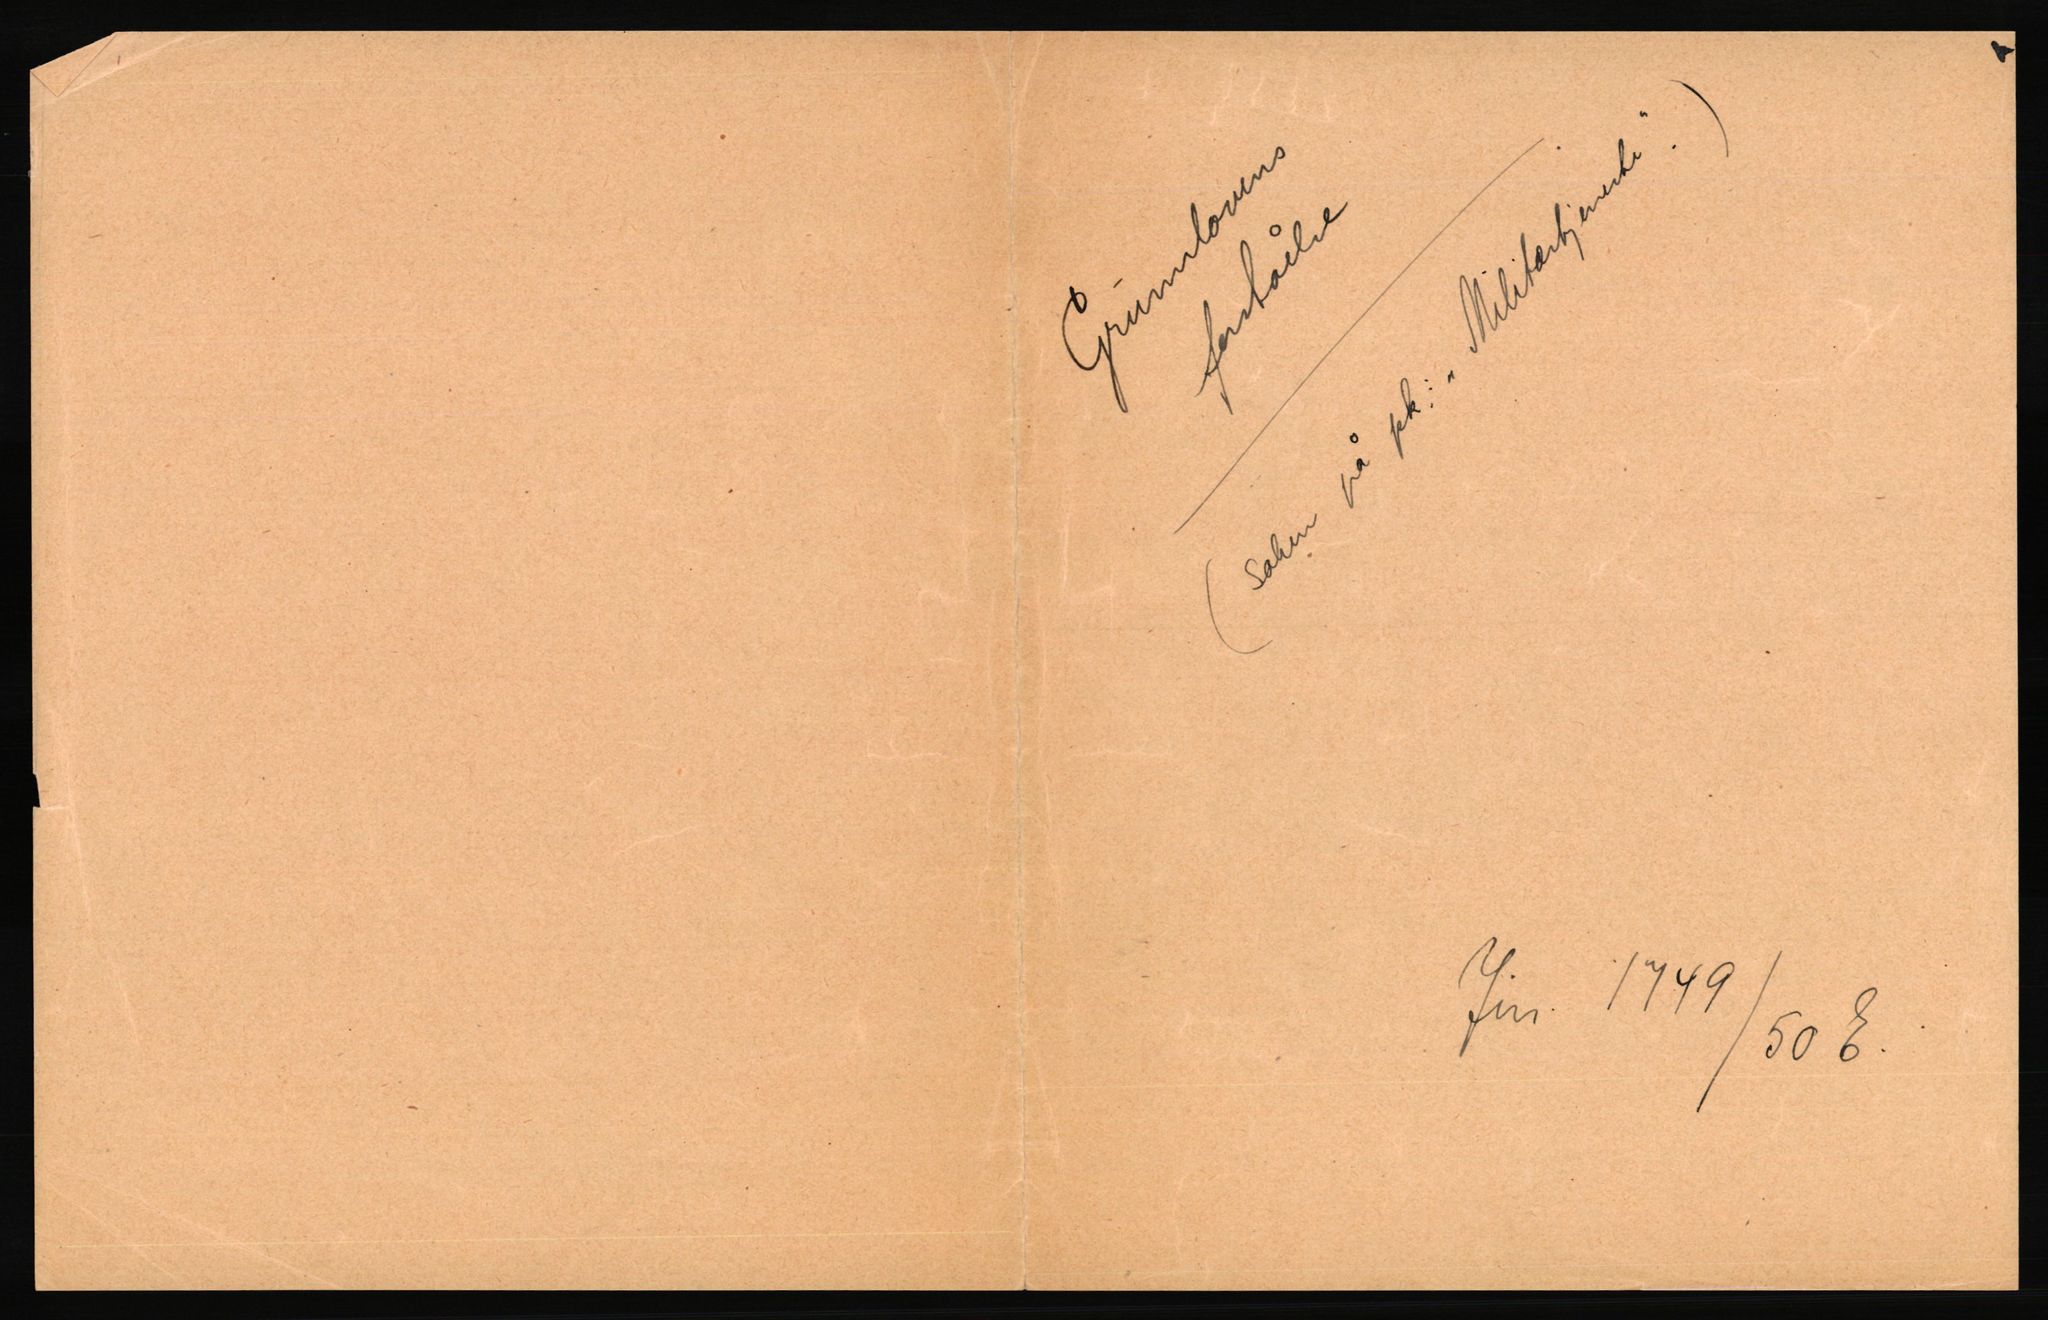 Grunnlovens
forståelse
(Saken på pk: "Militærtjeneste".)
Jnr. 1749/50 E.